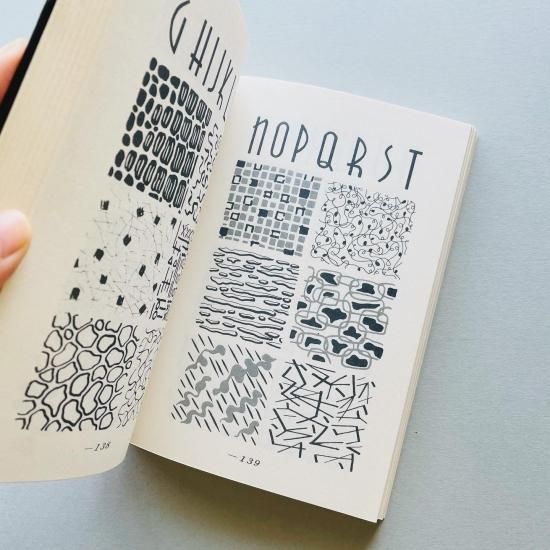 GHIJK
—138
NOPQRST
—139